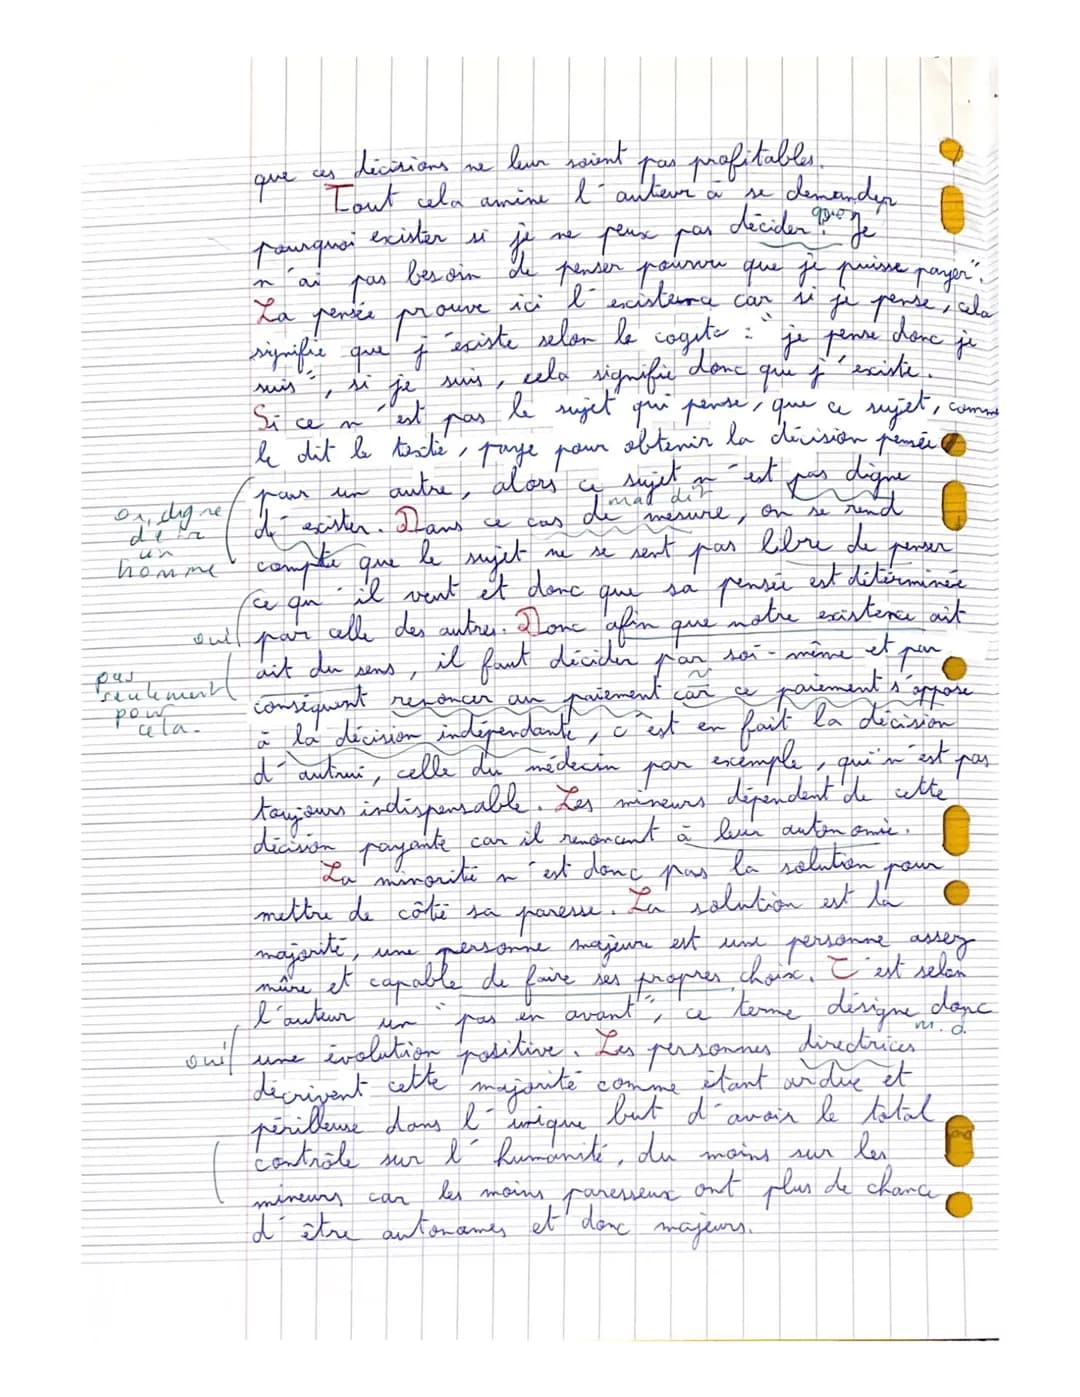 que ces décisions ne leur soient pas profitables.
Tout cela amène l'auteur à se demander
pourquoi exister si je ne peux pas décider ? "Je
n'ai pas besoin de penser pourvu que je puisse payer".
La pensée prouve ici l'existence car si je pense, cela
signifie que j'existe selon le cogito : "je pense donc je
suis", si je suis, cela signifie donc que j'existe.
Si ce n'est pas le sujet qui pense, que ce sujet, comme
le dit le texte, paye pour obtenir la décision pensée
par un autre, alors ce sujet n'est pas digne
Oui, digne
d'être
un
homme
mal dit
d'exister. Dans ce cas de mesure, on se rend
compte que le sujet ne se sent pas libre de penser
ce qu'il veut et donc que sa pensée est déterminée
oui
par celle des autres. Donc afin que notre existence ait
ait du sens, il faut décider par soi-même et par
pas
seulement
pour
cela.
conséquent renoncer au paiement car ce paiement s'oppose
à la décision indépendante, c'est en fait la décision
d'autrui, celle du médecin par exemple, qui n'est pas
toujours indispensable. Les mineurs dépendent de cette
décision payante car il renoncent à leur autonomie.
La minorité n'est donc pas la solution pour
mettre de côté sa paresse. La solution est la
majorité, une personne majeure est une personne assez
mûre et capable de faire ses propres choix. C'est selon
l'auteur un "pas en avant", ce terme désigne donc
m. d.
oui
une évolution positive. Les personnes directrices
décrivent cette majorité comme étant ardue et
périlleuse dans l'unique but d'avoir le total
contrôle sur l'humanité, du moins sur les
mineurs car les moins paresseux ont plus de chance
d'être autonomes et donc majeurs.